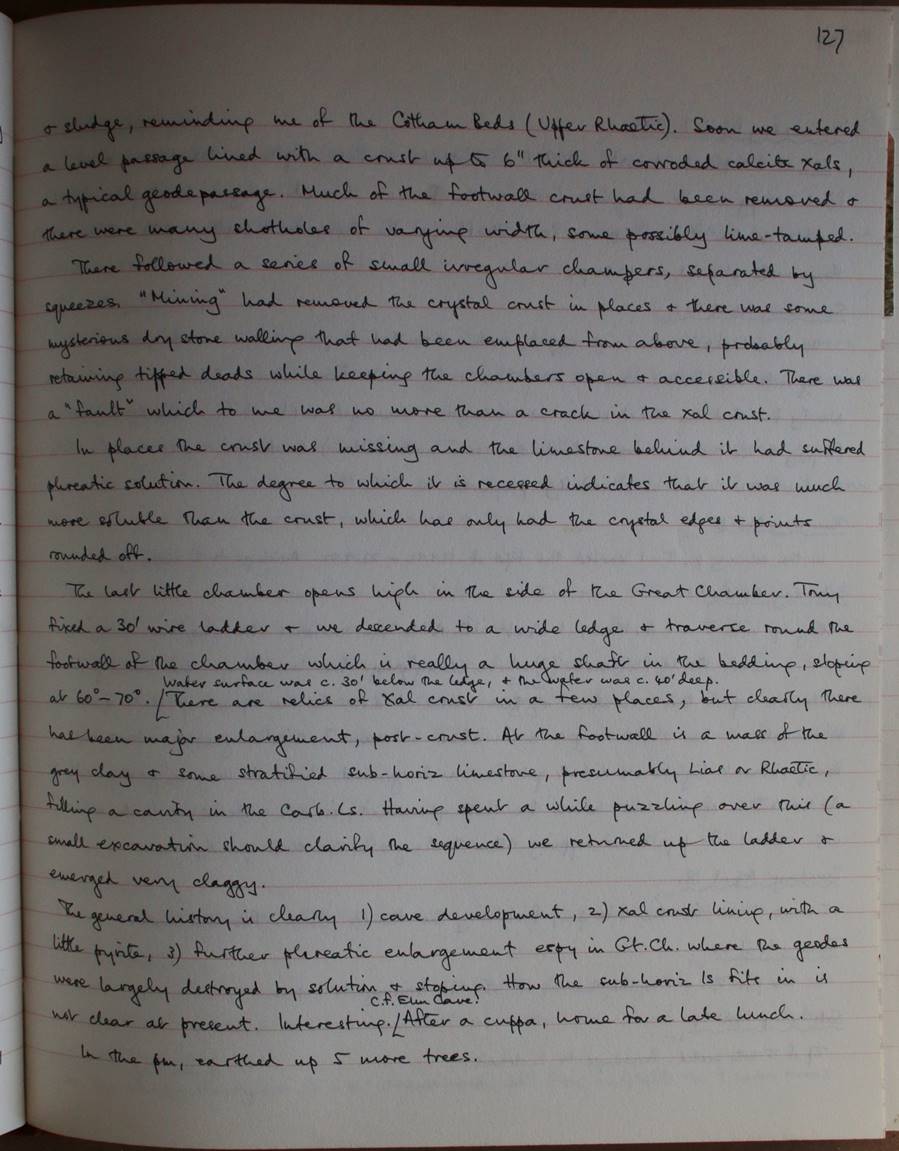 127
& sludge, reminding me of the Cotham Beds (Upper Rhaetic). Soon we entered
a level passage lined with a crust up to 6" thick of corroded calcite xals,
a typical geode passage. Much of the footwall crust had been removed &
there were many shotholes of varying width, some possibly lime-tamped.
There followed a series of small irregular chambers, separated by
squeezes. "Mining" had removed the crystal crust in places & there was some
mysterious dry stone walling that had been emplaced from above, probably
retaining tipped deads while keeping the chambers open & accessible. There was
a "fault" which to me was no more than a crack in the xal crust.
In places the crust was missing and the limestone behind it had suffered
phreatic solution. The degree to which it is recessed indicates that it was much
more soluble than the crust, which has only had the crystal edges & points
rounded off.
The last little chamber opens high in the side of the Great Chamber. Tony
fixed a 30' wire ladder & we descended to a wide ledge & traverse round the
footwall of the chamber which is really a huge shaft in the bedding, sloping
water surface was c. 30' below the ledge, & the water was c. 40' deep.
at 60°-70°. [There are relics of xal crust in a few places, but clearly there
has been major enlargement, post-crust. At the footwall is a mass of the
grey clay & some stratified sub-horiz limestone, presumably Lias or Rhaetic,
filling a cavity in the Carb. Ls. Having spent a while puzzling over this (a
small excavation should clarify the sequence) we returned up the ladder &
emerged very claggy.
The general history is clearly 1) cave development, 2) xal crust lining, with a
little pyrite, 3) further phreatic enlargement espy in Gt. Ch. where the geodes
were largely destroyed by solution & stoping. How the sub-horiz ls fits in is
c.f. Elm Cave!
not clear at present. Interesting. [After a cuppa, home for a late lunch.
In the pm, earthed up 5 more trees.